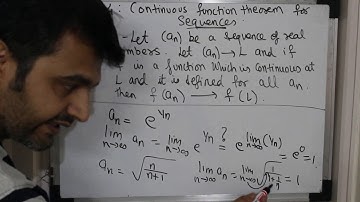 : Continuous function theorem for
Sequences
- Let (aₙ) be a sequence of real
numbers. Let (aₙ) → L and if
f is a function which is continuous at
L and it is defined for all aₙ.
then f(aₙ) → f(L).
aₙ = e^{1/n}
lim_{n→∞} aₙ = lim_{n→∞} e^{1/n} ?= e^{lim_{n→∞}(1/n)} = e⁰ = 1.
aₙ = √(n/(n+1)) lim_{n→∞} aₙ = lim_{n→∞} √(1/(1+1/n)) = 1